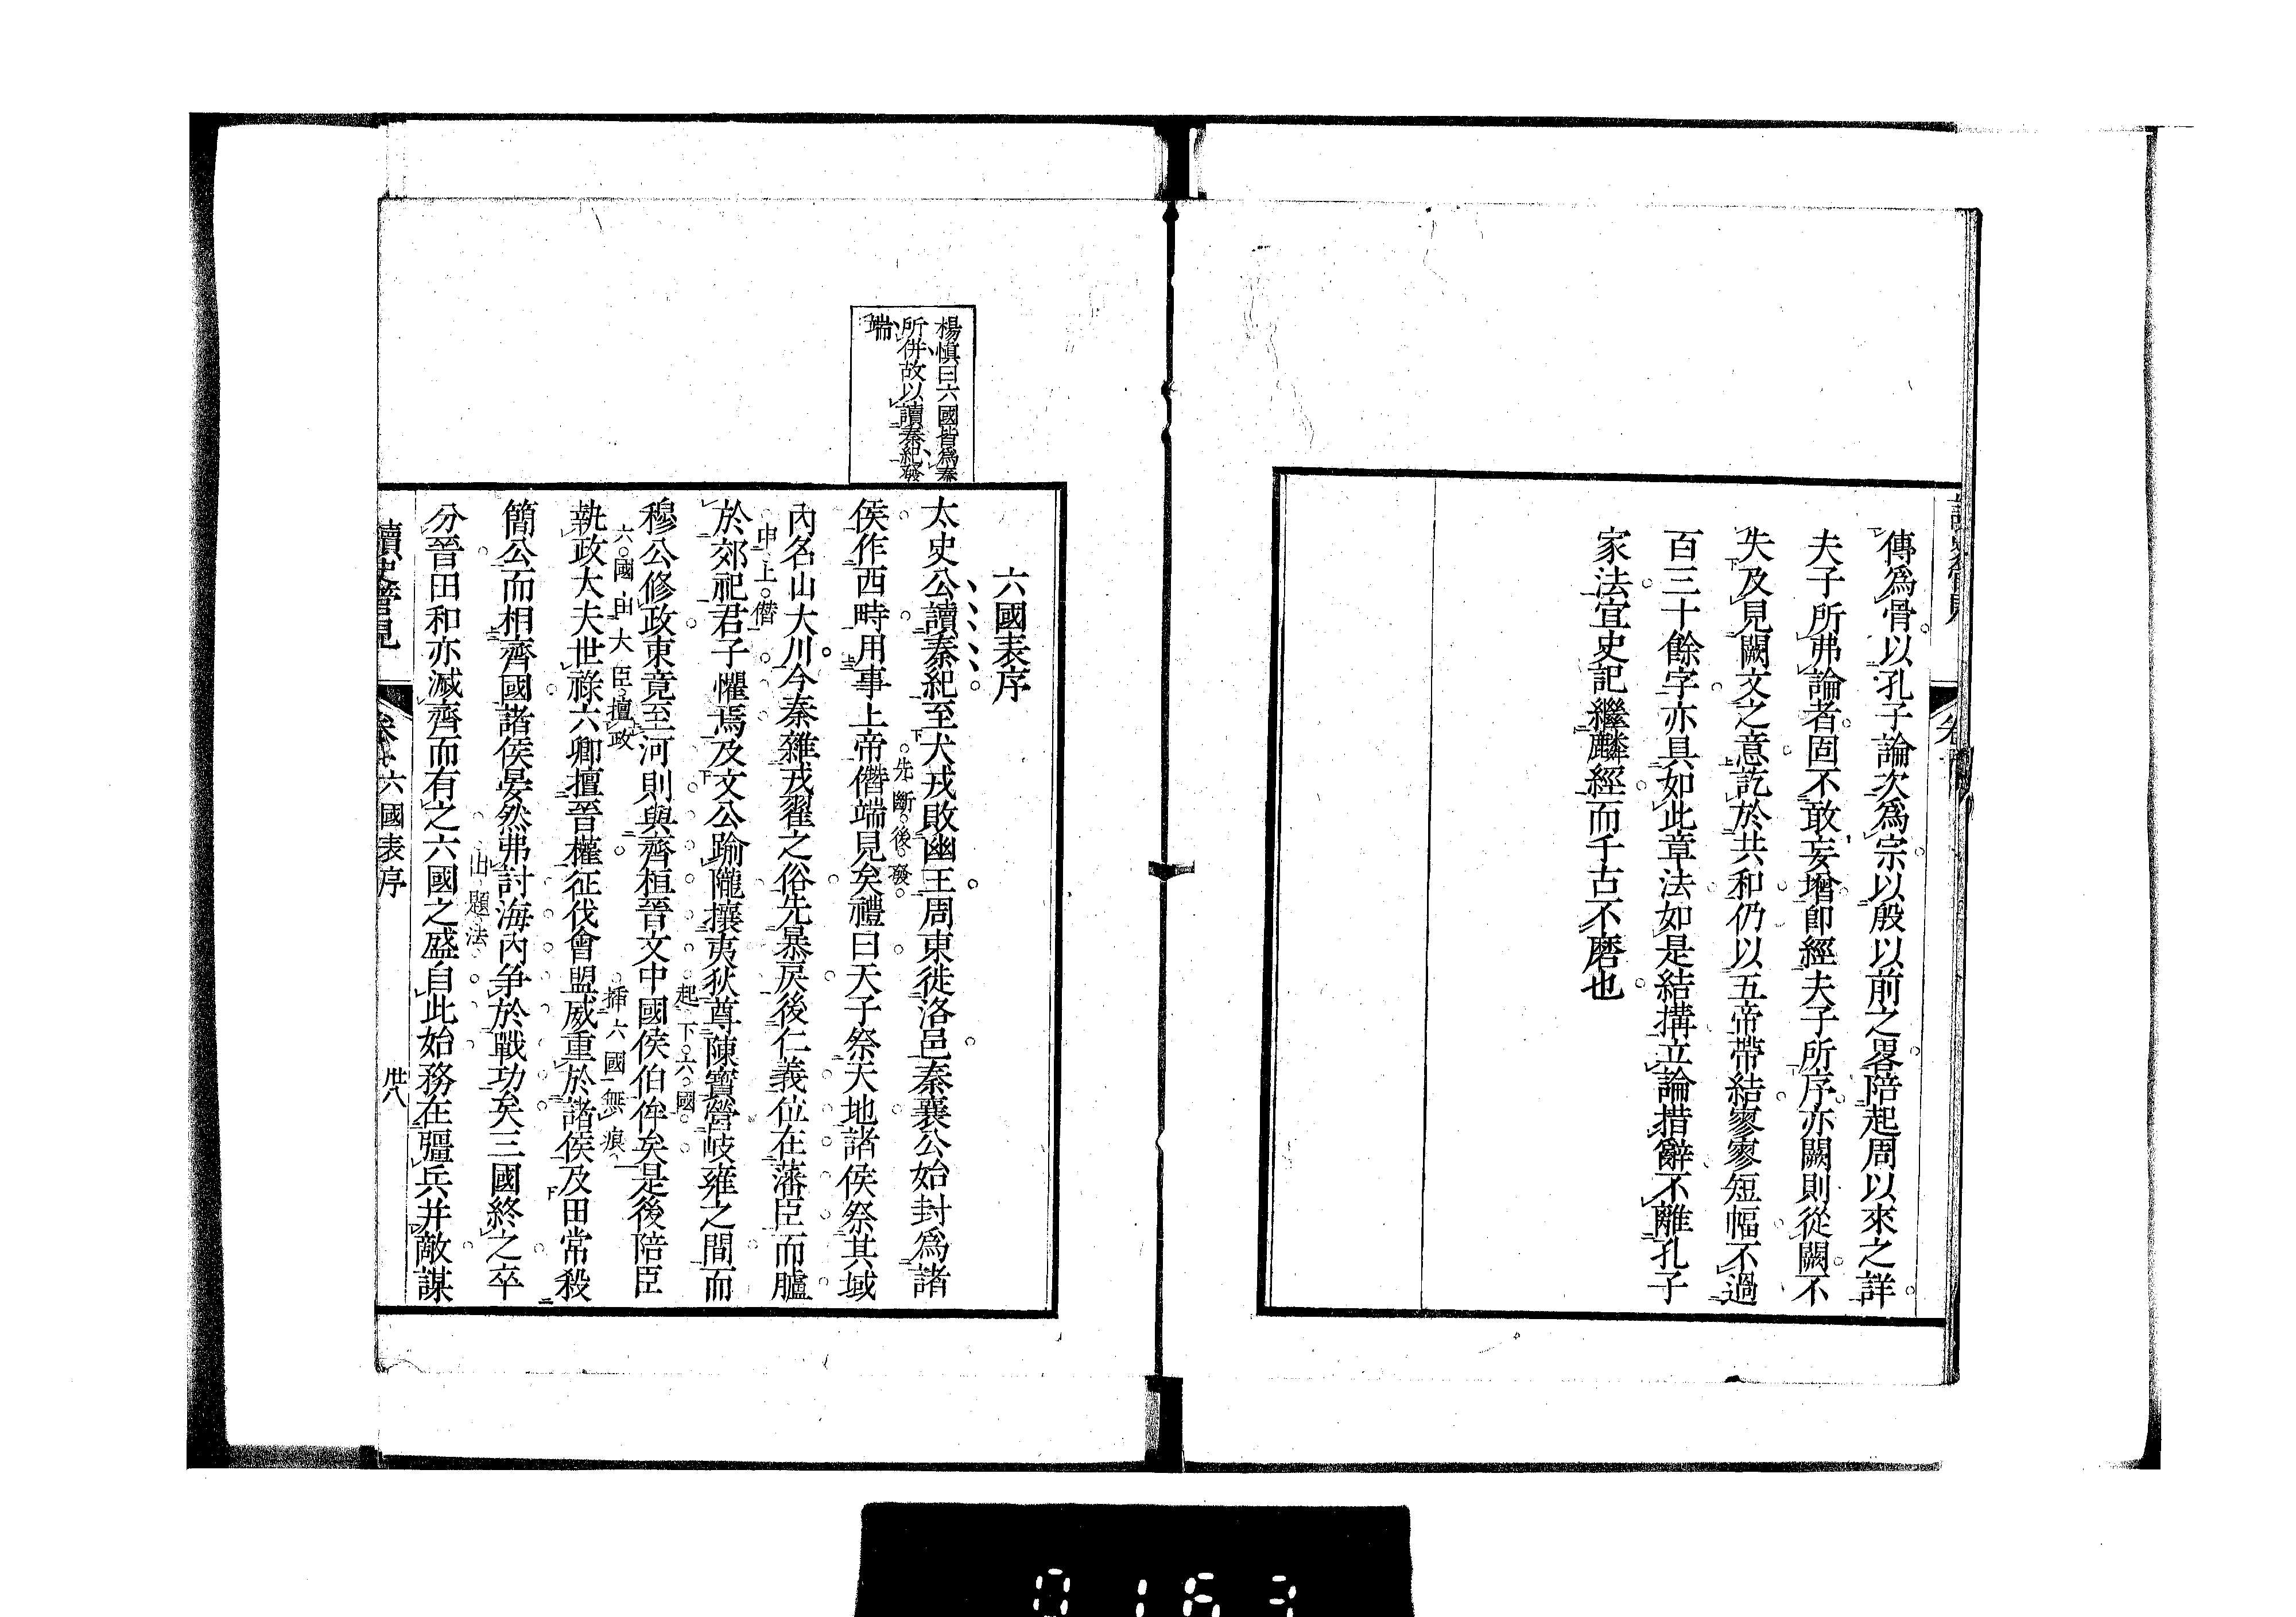 傳爲骨以孔子論次爲宗以殷以前之畧陪起周以來之詳
夫子所弗論者固不敢妄增卽經夫子所序亦闕則從闕不
失及見闕文之意訖於共和仍以五帝帶結寥寥短幅不過
百三十餘字亦具如此章法如是結搆立論措辭不離孔子
家法宜史記繼麟經而千古不磨也
楊愼曰六國皆爲秦
所併故以讀秦紀發
端
六國表序
太史公讀秦紀至犬戎敗幽王周東徙洛邑秦襄公始封爲諸
先斷後發
侯作西畤用事上帝僭端見矣禮曰天子祭天地諸侯祭其域
內名山大川今秦雜戎翟之俗先暴戾後仁義位在藩臣而臚
申上僭
於郊祀君子懼焉及文公踰隴攘夷狄尊陳寶營岐雍之間而
起下六國
穆公修政東竟至河則與齊桓晉文中國侯伯侔矣是後陪臣
六國由大臣擅政
插六國無痕
執政大夫世祿六卿擅晉權征伐會盟威重於諸侯及田常殺
簡公而相齊國諸侯晏然弗討海內爭於戰功矣三國終之卒
出題法
分晉田和亦滅齊而有之六國之盛自此始務在彊兵幷敵謀
讀史管見
六國表序
卅八
0163